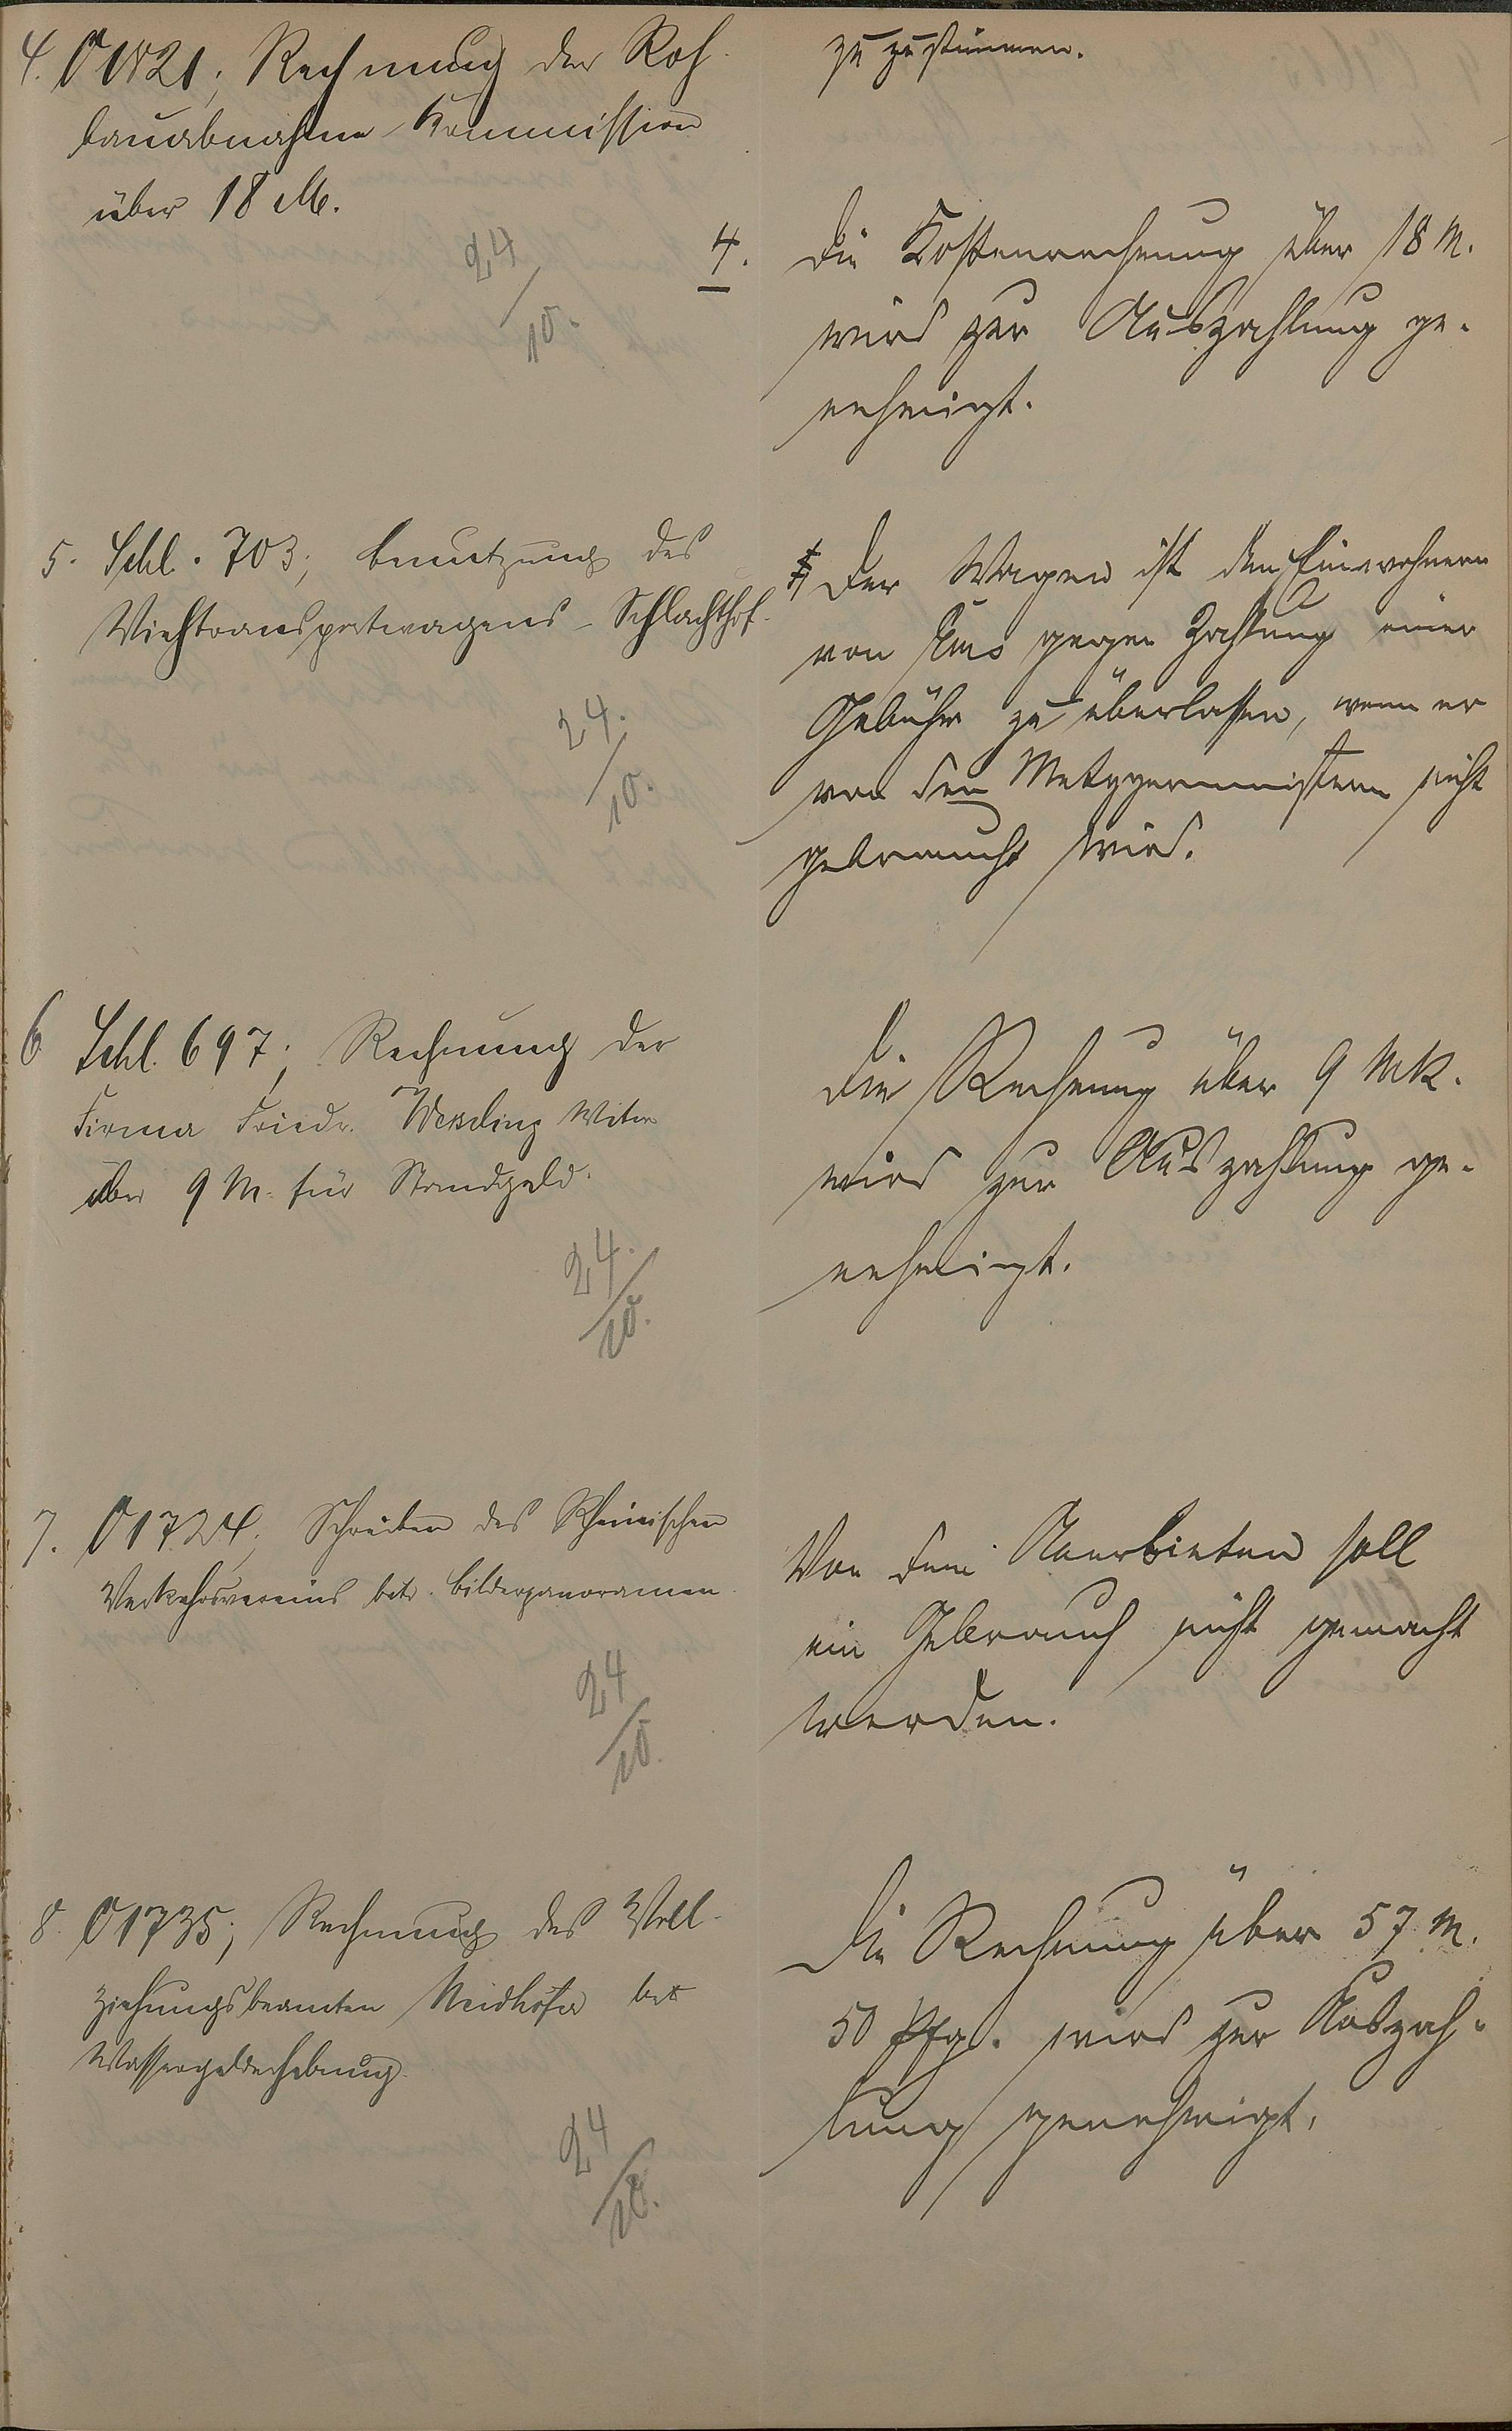 4. O 1821; Rechnung der Roh-
bauabnahme-Kommission
über 18 M.
24
/
10.
zuzustimmen.
4. Die Kostenrechnung über 18 M.
wird zur Auszahlung ge-
nehmigt.
5. Schl. 703; Benutzung des
Viehtransportwagens-Schlachthof.
24.
/
10.
Der Wagen ist den Einwohnern
von Ems gegen Zahlung einer
Gebühr zu überlassen, wenn er
von den Metzgermeistern nicht
gebraucht wird.
6 Schl. 697; Rechnung der
Firma Friedr. Wessling
über 9 M. für Standgeld.
24.
/
10.
Die Rechnung über 9 Mk.
wird zur Auszahlung ge-
nehmigt.
7. O 1724; Schreiben des Rheinischen
Verkehrsvereins betr. Bilderpanoramen.
24
/
10.
Von dem Anerbieten soll
ein Gebrauch nicht gemacht
werden.
8. O 1735; Rechnung des Voll-
ziehungsbeamten Neidhöfer betr
Wassergelderhebung.
24
/
10.
Die Rechnung über 57 M.
50 Pfg. wird zur Auszah-
lung genehmigt.